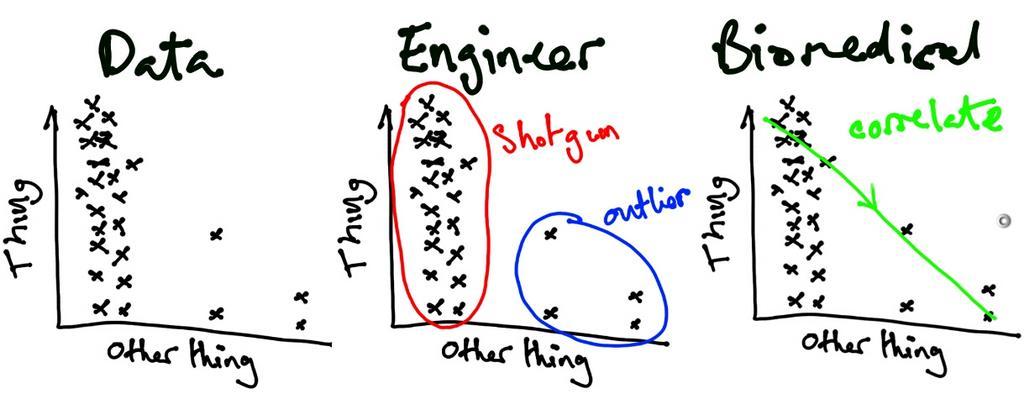 Data
Thing
Other thing
Engineer
Shotgun
outlier
Thing
Other thing
Biomedical
correlate
Thing
Other thing